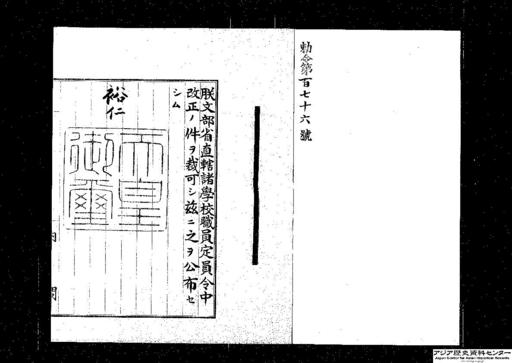 勅令第百七十六號
朕文部省直轄諸學校職員定員令中
改正ノ件ヲ裁可シ茲ニ之ヲ公布セ
シム
裕仁
天皇御璽
アジア歴史資料センター
Japan Center for Asian Historical Records